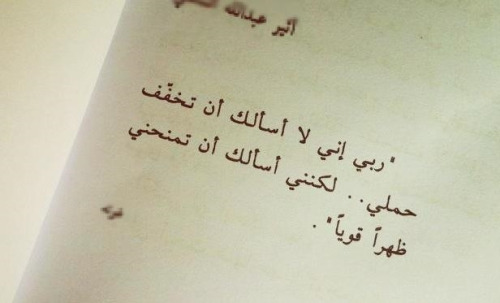 أثير عبدالله
"ربي إني لا أسألك أن تخفّف
حملي.. لكنني أسألك أن تمنحني
ظهراً قوياً".